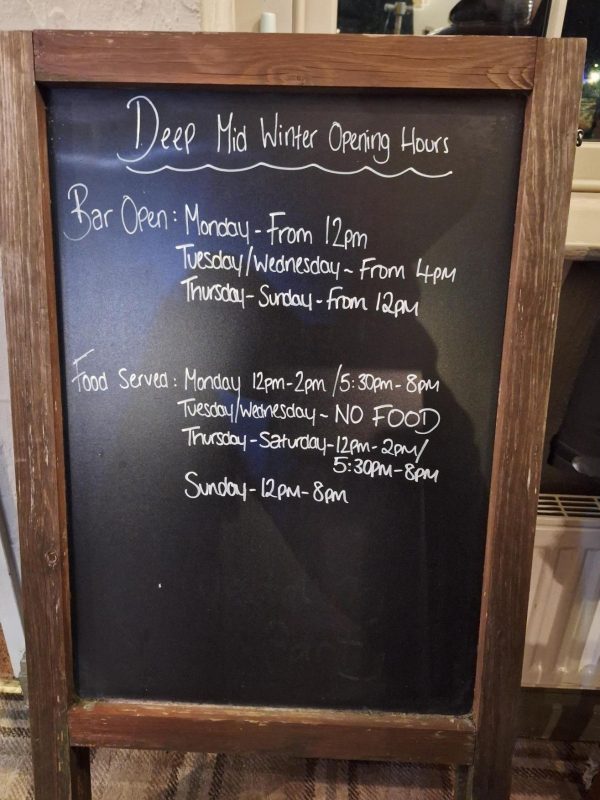 Deep Mid Winter Opening Hours
Bar Open: Monday - From 12pm
Tuesday/Wednesday - From 4pm
Thursday - Sunday - From 12pm
Food Served: Monday 12pm-2pm /5:30pm-8pm
Tuesday/Wednesday - NO FOOD
Thursday - Saturday - 12pm-2pm/
5:30pm-8pm
Sunday - 12pm-8pm